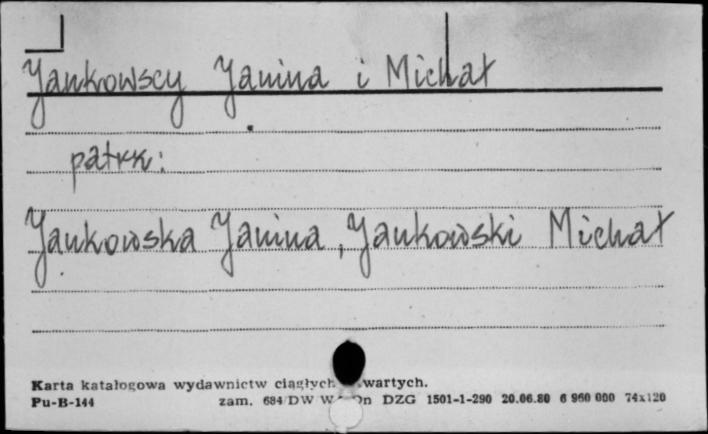 Jankowscy Janina i Michał
patrz:
Jankowska Janina, Jankowski Michał
Karta katalogowa wydawnictw ciągłych wartych.
Pu-B-144 zam. 684/DW DZG 1501-1-290 20.06.80 6 960 000 74x120